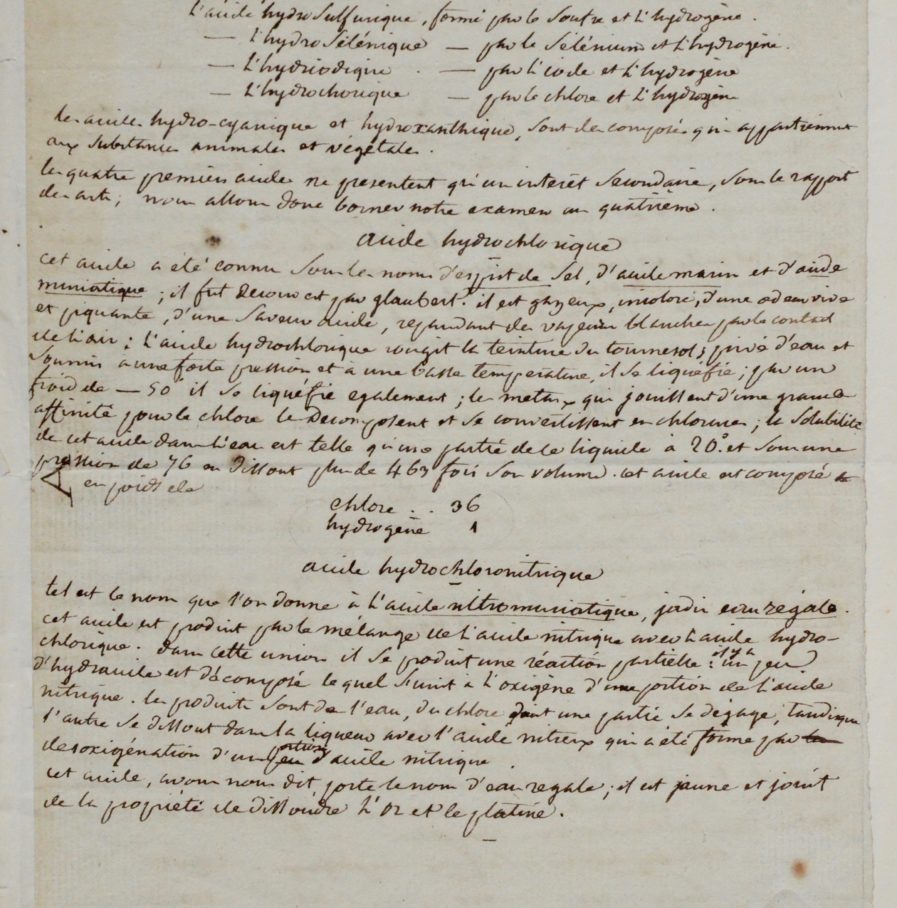 L'acide hydro Sulfurique, formé par le Soufre et L'hydrogène.
— L'hydro Sélénique — par le Sélénium et L'hydrogène.
— L'hydriodique . — par L'iode et L'hydrogène
— L'hydrochorique — par le chlore et L'hydrogène
les acides hydro-cyanique et hydroxanthique, Sont des composés qui appartiennent
aux Substances animales et végétales.
les quatre premiers acides ne présentent qu'un intérêt Secondaire, Sous le rapport
des arts; nous allons donc borner notre examen au quatrième.
acide hydrochlorique
cet acide a été connu Sous les noms d'esprit de Sel, d'acide marin et d'acide
muriatique; il fut Découvert par glaubert. il est gazeux, incolore, d'une odeur vive
et piquante, d'une Saveur acide, repandant des vapeurs blanches par le contact
de l'air; L'acide hydrochlorique rougit la teinture du tournesol; privé d'eau et
Soumis a une forte pression et a une basse température, il se liquéfie; par un
froid de — 50° il Se liquéfie également; les métaux qui jouissent d'une grande
affinité pour le chlore le Décomposent et Se convertissent en chlorures; la Solubilité
de cet acide dans L'eau est telle qu'une partie de ce liquide à 20° et Sous une
pression de 76 en Dissout plus de 463 fois Son volume. cet acide est composé de
en poids de
chlore . . 36
hydrogène 1
acide hydrochloronitrique
tel est le nom que l'on donne à L'acide nitromuriatique, jadis eau régale.
cet acide est produit par le mélange de L'acide nitrique avec L'acide hydro-
chlorique. Dans cette union il Se produit une réaction partielle: il y a un peu
d'hydracide est décomposé lequel S'unit à L'oxigène d'une portion de L'acide
nitrique. les produits Sont de l'eau, du chlore dont une partie Se dégage, tandis que
l'autre Se dissout dans la liqueur avec l'acide nitreux qui a été formé par la
desoxigénation d'une portion d'acide nitrique.
cet acide, avons nous dit, porte le nom d'eau regale; il est jaune et jouit
de la propriété de Dissoudre L'or et le platine.